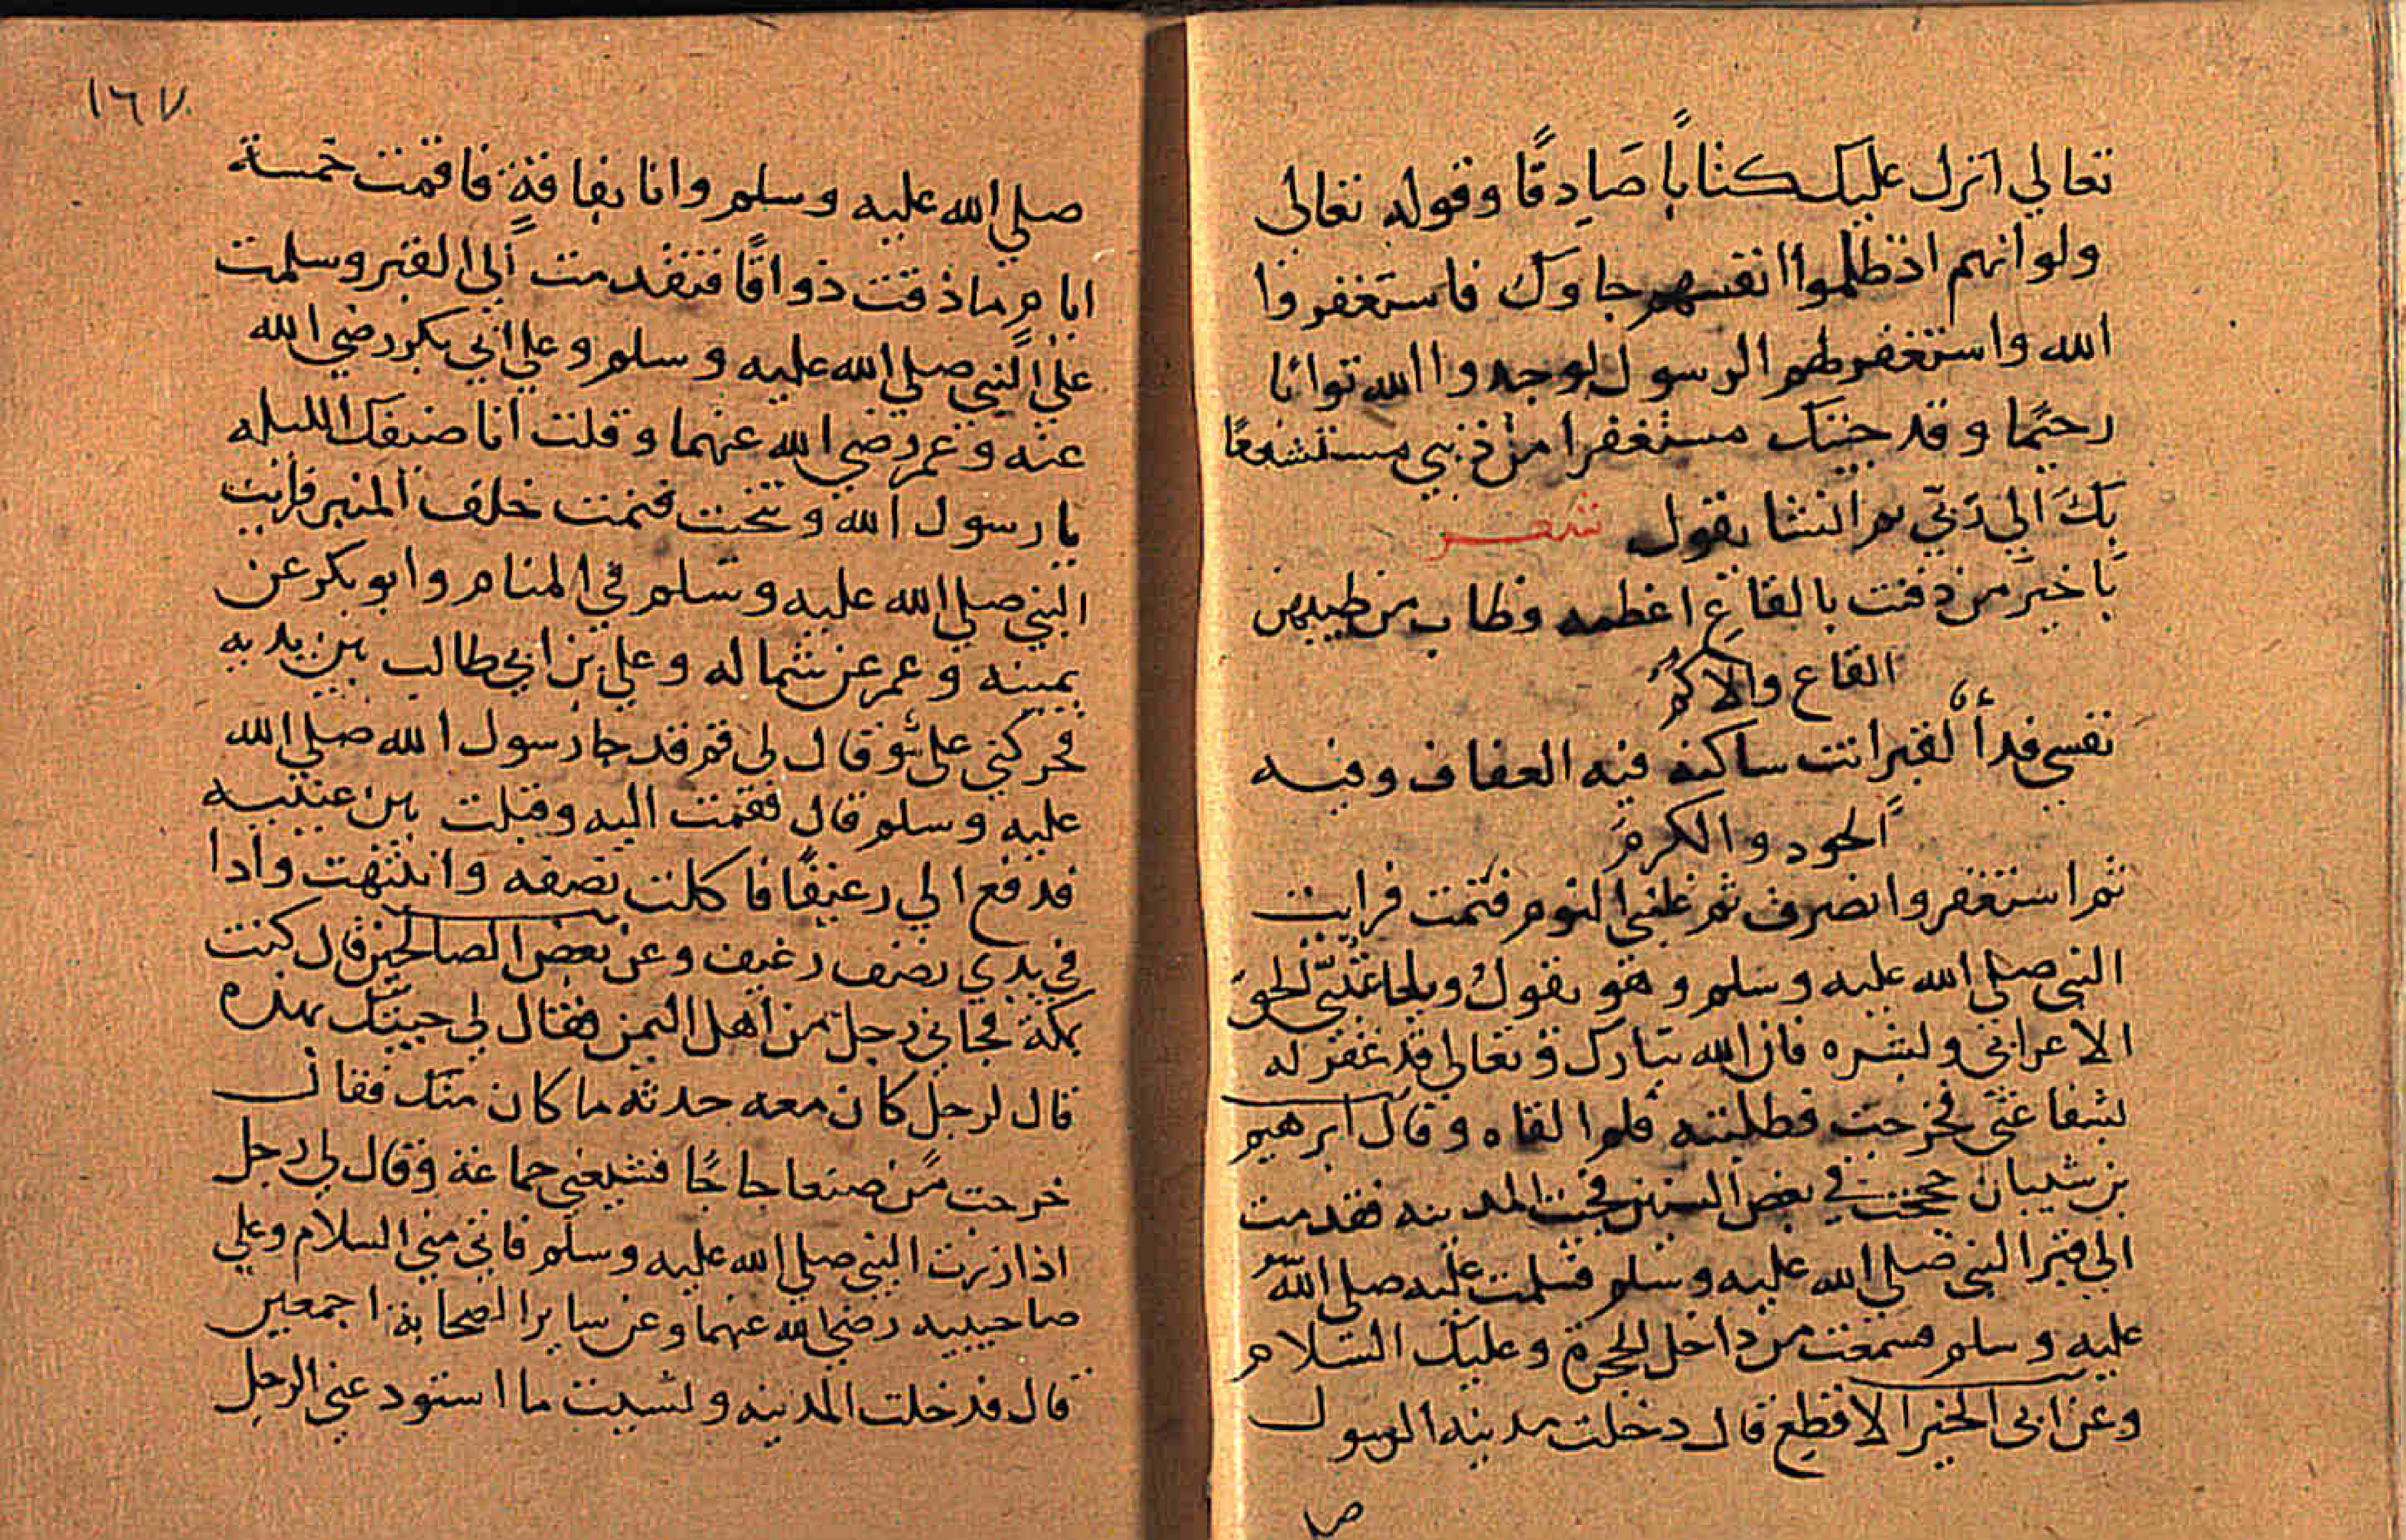 تعالي انزل عليك كتابا صادقا وقوله تعالى
ولوانهم اذ ظلموا انفسهم جاوك فاستغفروا
الله واستغفر لهم الرسول لوجدوا الله توابا
رحيما وقد جيتك مستغفرا من ذنبي مستشفعا
بك الي ربي ثم انشا يقول شعر
يا خير من دفنت بالقاع اعظمه وطاب من طيبهن
القاع والاكم
نفسي فدا لقبر انت ساكنه فيه العفاف وفيه
الجود والكرم
ثم استغفر وانصرف ثم غلبني النوم فنمت فرايت
النبي صلي الله عليه وسلم وهو يقول الحق
الاعرابي وبشره فان الله تبارك وتعالي قد غفر له
بشفاعتي فخرجت فطلبته فلم القاه وقال ابرهيم
بن شيبان حججت في بعض السنين فجيت المدينه فتقدمت
الي قبر النبي صلي الله عليه وسلم فسلمت عليه صلي الله
عليه وسلم فسمعت من داخل الحجرة وعليك السلام
وعن ابي الخير الاقطع قال دخلت مدينه الرسول
ص
١٦٧
صلي الله عليه وسلم وانا بفاقة فاقمت خمسة
ايام ما ذقت ذواقا فتقدمت الي القبر وسلمت
علي النبي صلي الله عليه وسلم وعلي ابي بكر رضي الله
عنه وعمر رضي الله عنهما وقلت انا ضيفك الليله
يا رسول الله وتنحيت فنمت خلف المنبر فرايت
النبي صلي الله عليه وسلم في المنام وابو بكر عن
يمينه وعمر عن شماله وعلي بن ابي طالب بين يديه
فحركني علي وقال لي قم قد جا رسول الله صلي الله
عليه وسلم قال فقمت اليه وقبلت بين عينيه
فدفع الي رغيفا فاكلت نصفه وانتبهت واذا
في يدي نصف رغيف وعن بعض الصالحين قال كنت
بمكة فجاني رجل من اهل اليمن فقال لي جيتك بهذه
قال لرجل كان معه حدثه ما كان منك فقال
خرجت من صنعا حاجا فشيعني جماعة وقال لي رجل
اذا زرت النبي صلي الله عليه وسلم فاني مني السلام وعلي
صاحبيه رضي الله عنهما وعن ساير الصحابة اجمعين
قال فدخلت المدينه ونسيت ما استودعني الرجل